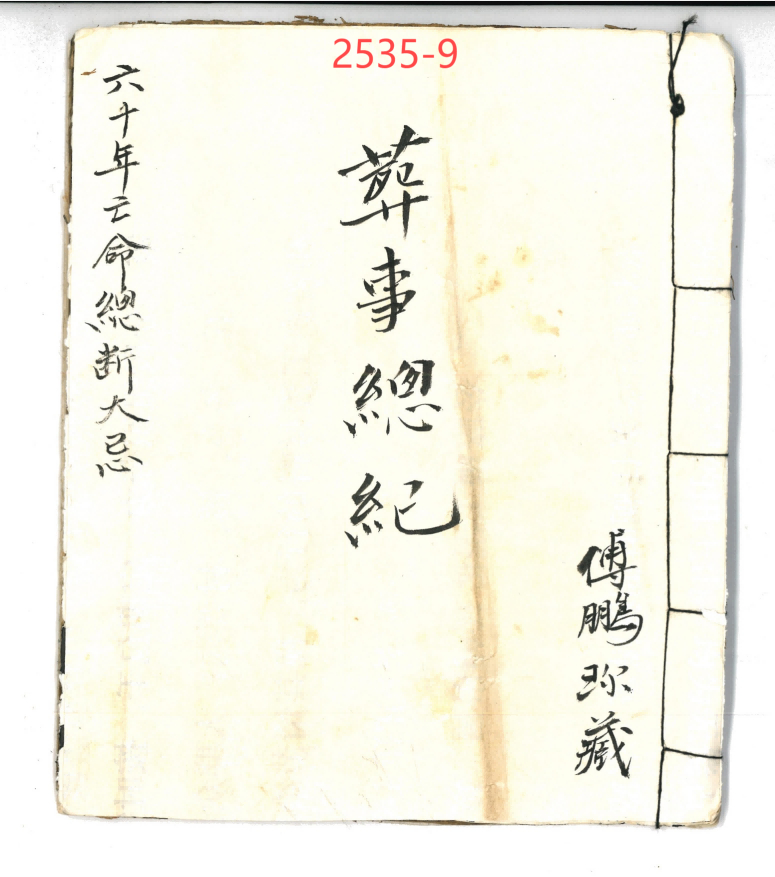 2535-9
傅鵬珎藏
葬事總紀
六十年亡命總断大忌